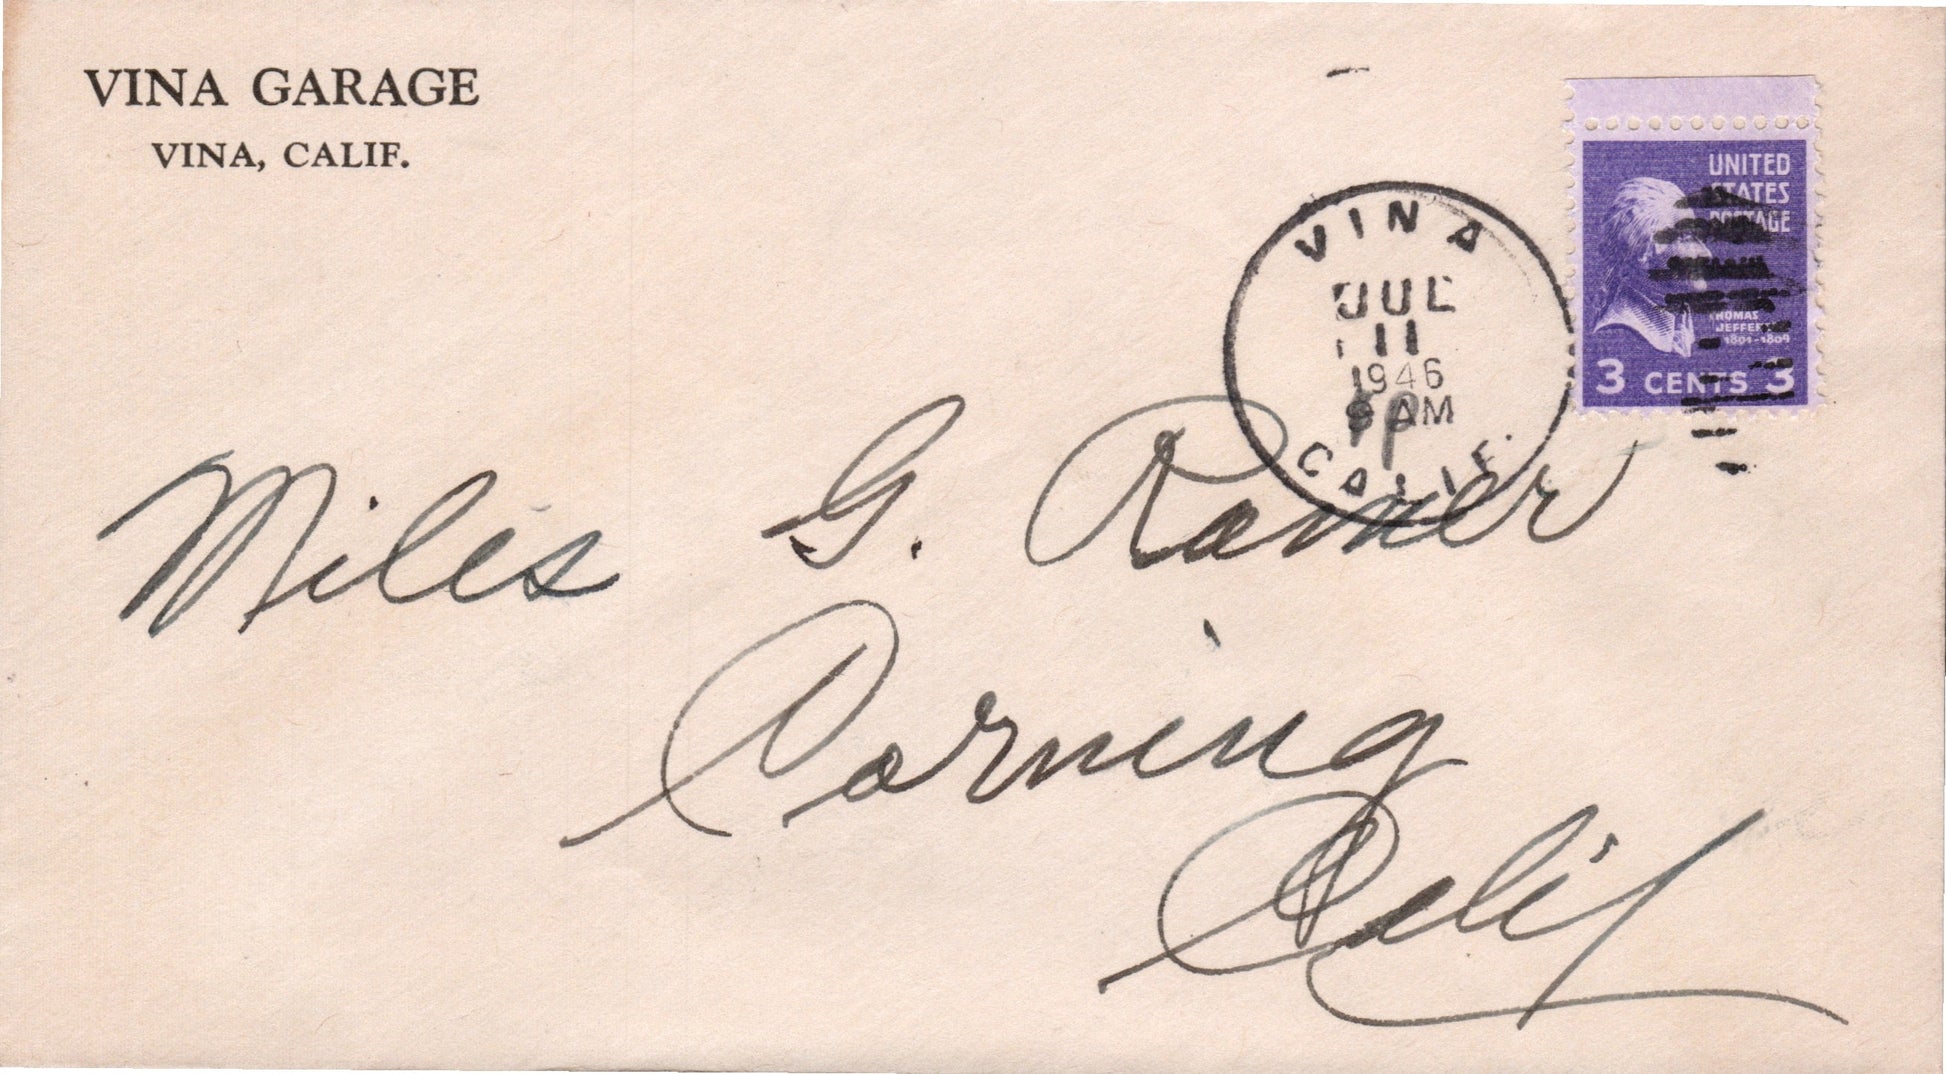 VINA GARAGE
VINA, CALIF.
VINA
JUL
11
1946
AM
CALIF.
UNITED
STATES
POSTAGE
THOMAS
JEFFER
1801-1809
3 CENTS 3
Miles G. Romer
Corning
Calif